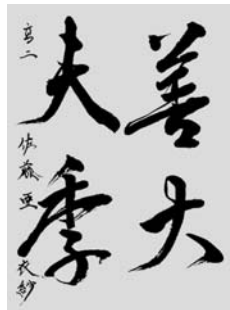 善大
夫季
高二 佐藤 亜衣紗